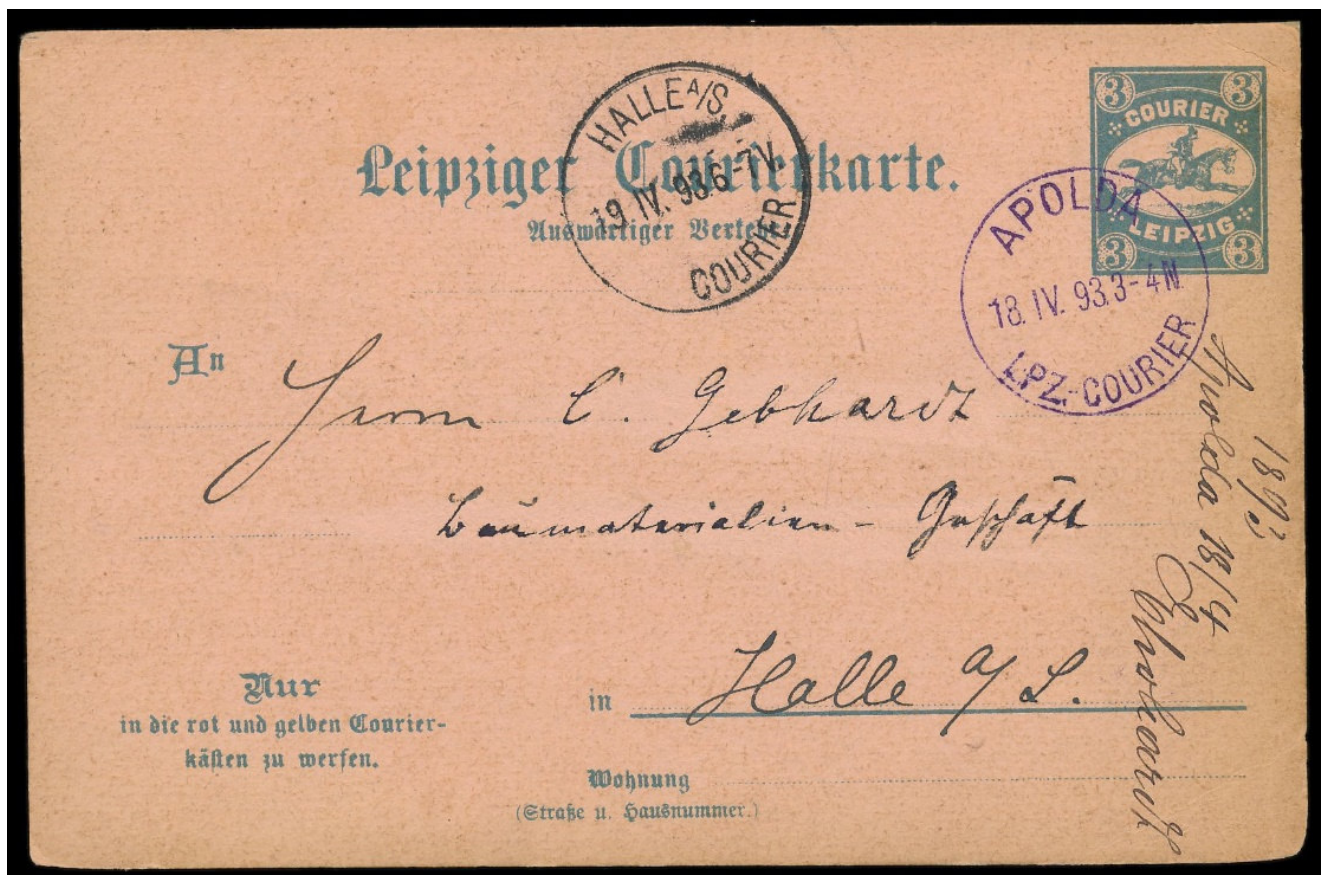 Leipziger Courierkarte.
Auswärtiger Verkehr.
3 3
COURIER
LEIPZIG
3 3
HALLE A/S.
19. IV. 93.6-7V.
COURIER
APOLDA
18. IV. 93.3-4N.
LPZ.-COURIER
An
Herrn C. Gebhardt
Baumaterialien - Geschäft
in Halle a/S.
Nur
in die rot und gelben Courier-
kästen zu werfen.
Wohnung
(Straße u. Hausnummer.)
1893
Apolda 18/4